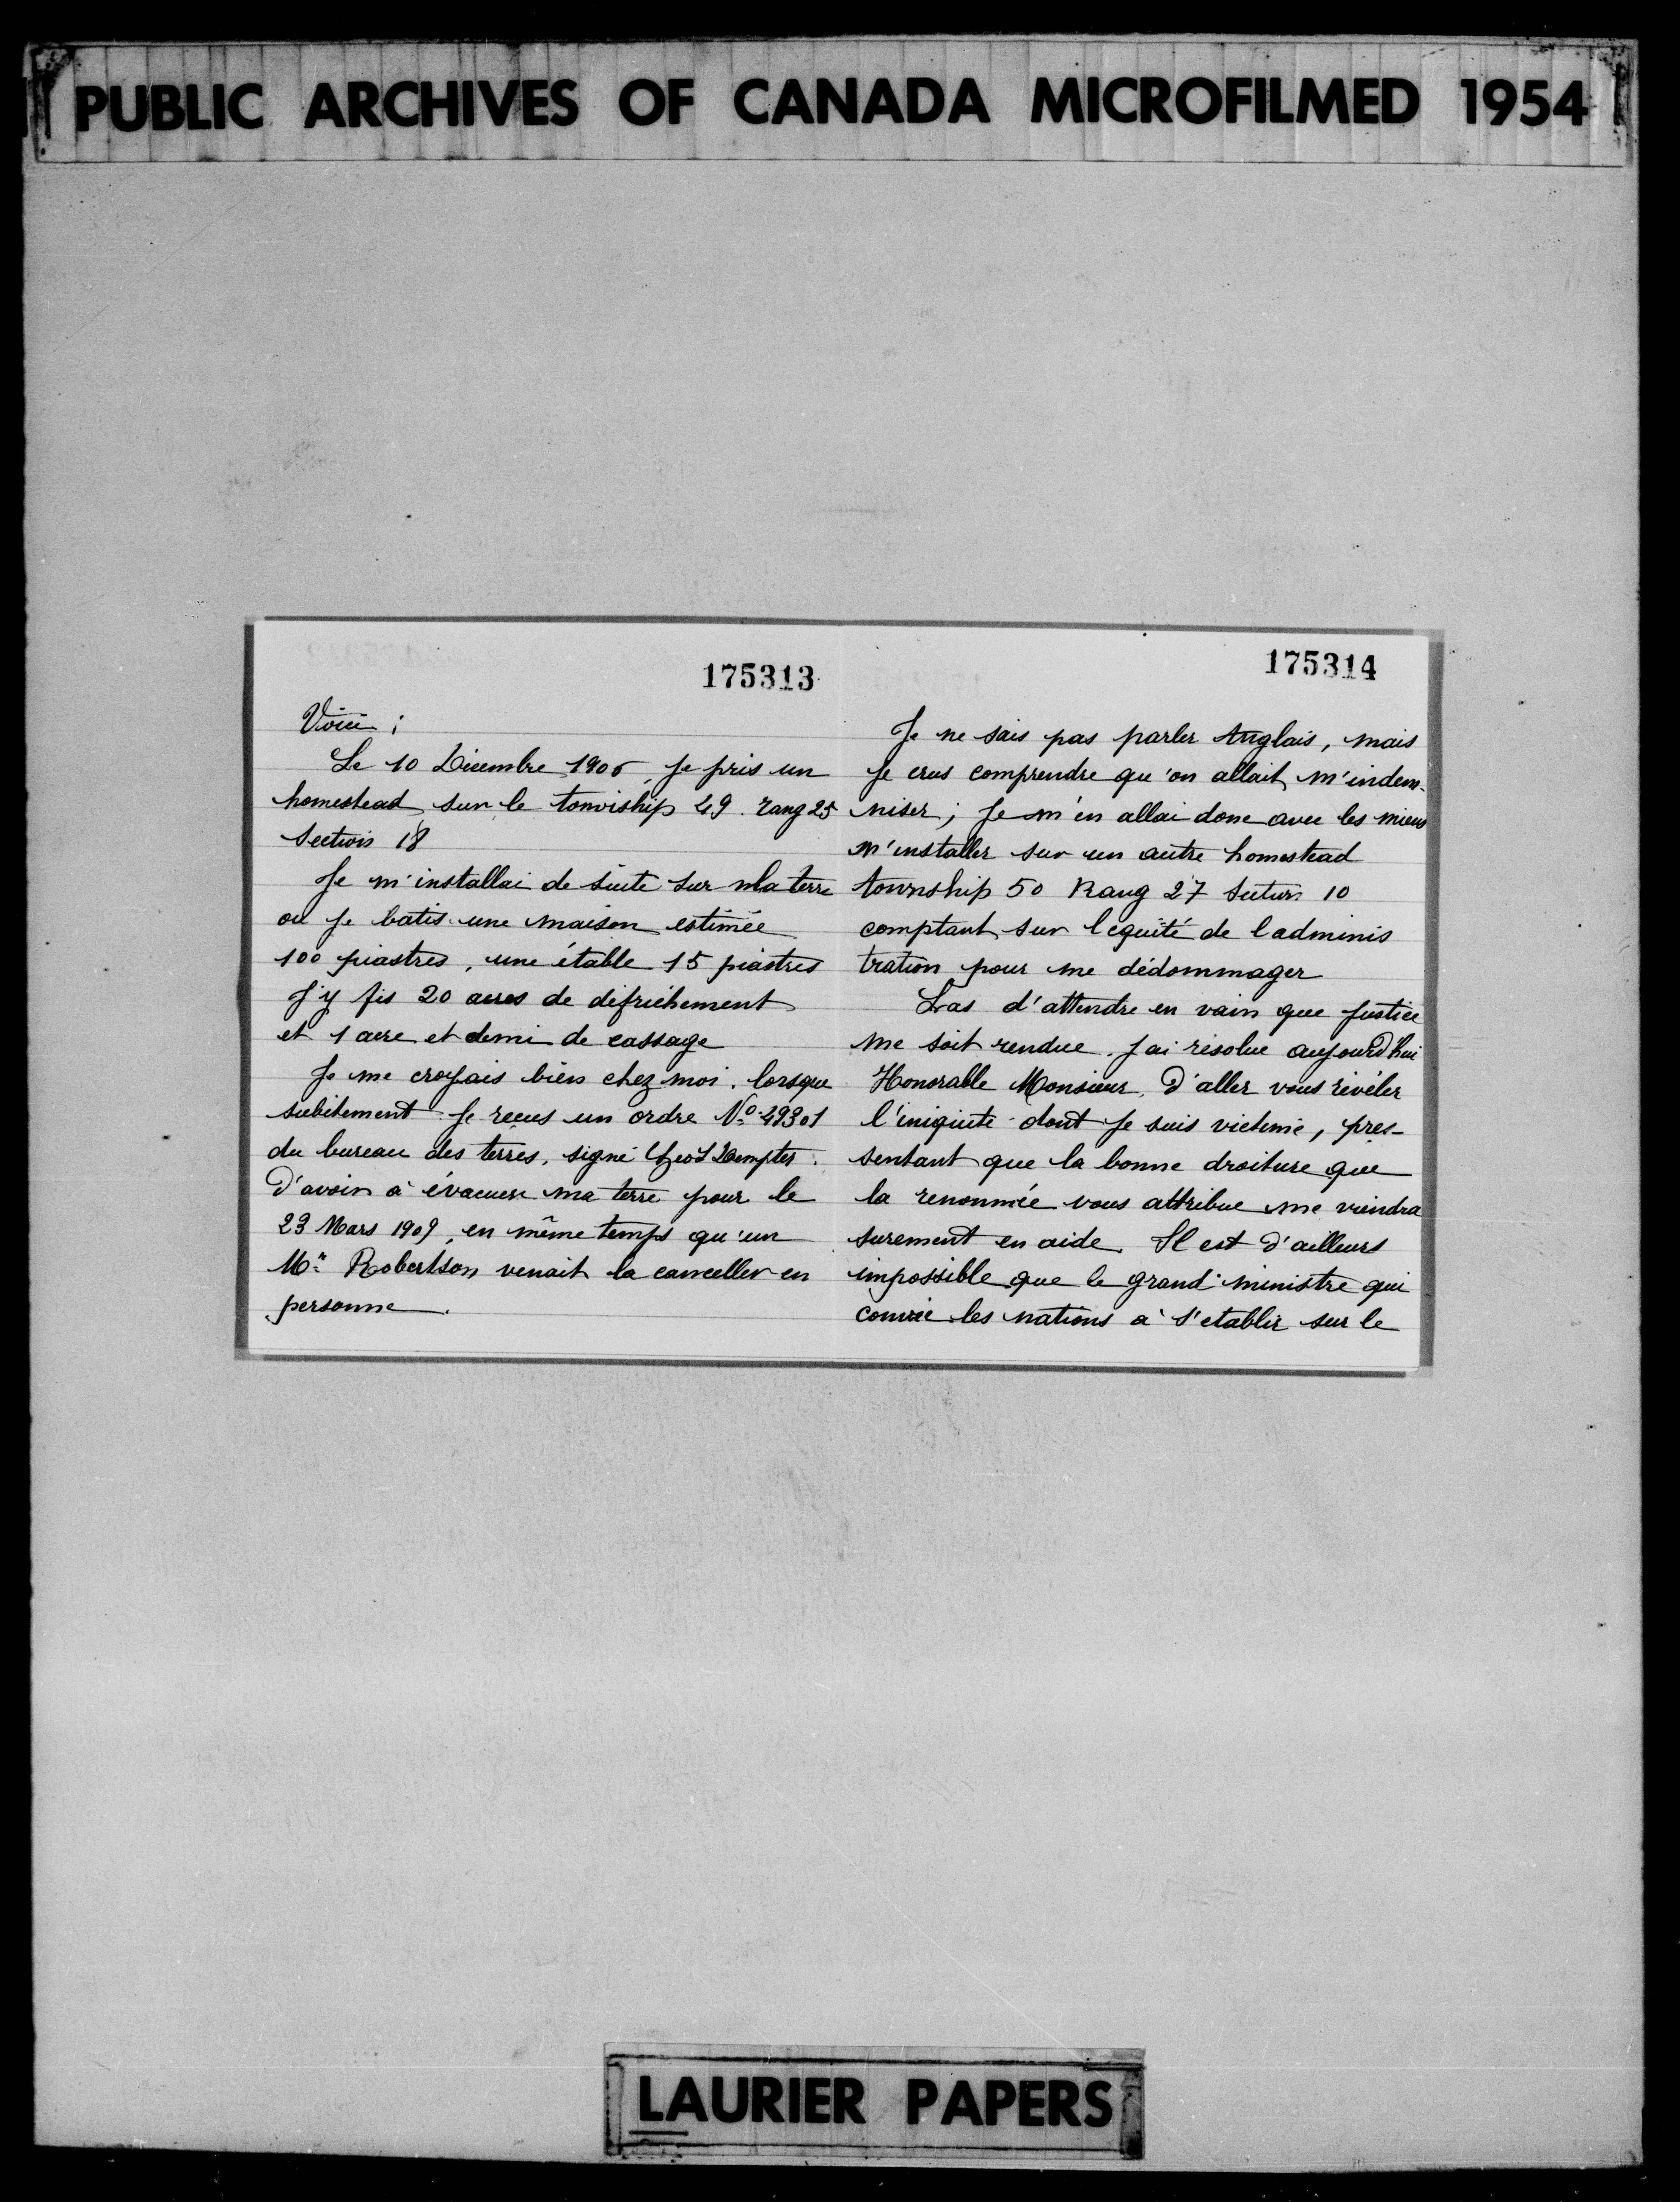 PUBLIC ARCHIVES OF CANADA MICROFILMED 1954
175313
Voici ;
Le 10 Décembre 1906, je pris un
homestead sur le township 49. rang 25
Section 18
Je m'installai de suite sur ma terre
ou je batis une maison estimée
100 piastres, une étable 15 piastres
J'y fis 20 acres de défrichement
et 1 acre et demi de cassage
Je me croyais bien chez moi. lorsque
subitement je reçus un ordre No 49301
du bureau des terres, signé
D'avoir à évacuer ma terre pour le
23 Mars 1909, en même temps qu'un
Mr Robertson venait la canceller en
personne.
175314
Je ne sais pas parler Anglais, mais
je crus comprendre qu'on allait m'indem-
niser; je m'en allai donc avec les miens
m'installer sur un autre homestead
township 50 Rang 27 Section 10
comptant sur l'equité de l'adminis
tration pour me dédommager
Las d'attendre en vain que justice
me soit rendue. J'ai résolue aujourd'hui
Honorable Monsieur, d'aller vous révéler
l'iniquité dont je suis victime, pres-
sentant que la bonne droiture que
la renommée vous attribue me viendra
surement en aide. Il est d'ailleurs
impossible que le grand ministre qui
convie les nations à s'etablir sur le
LAURIER PAPERS